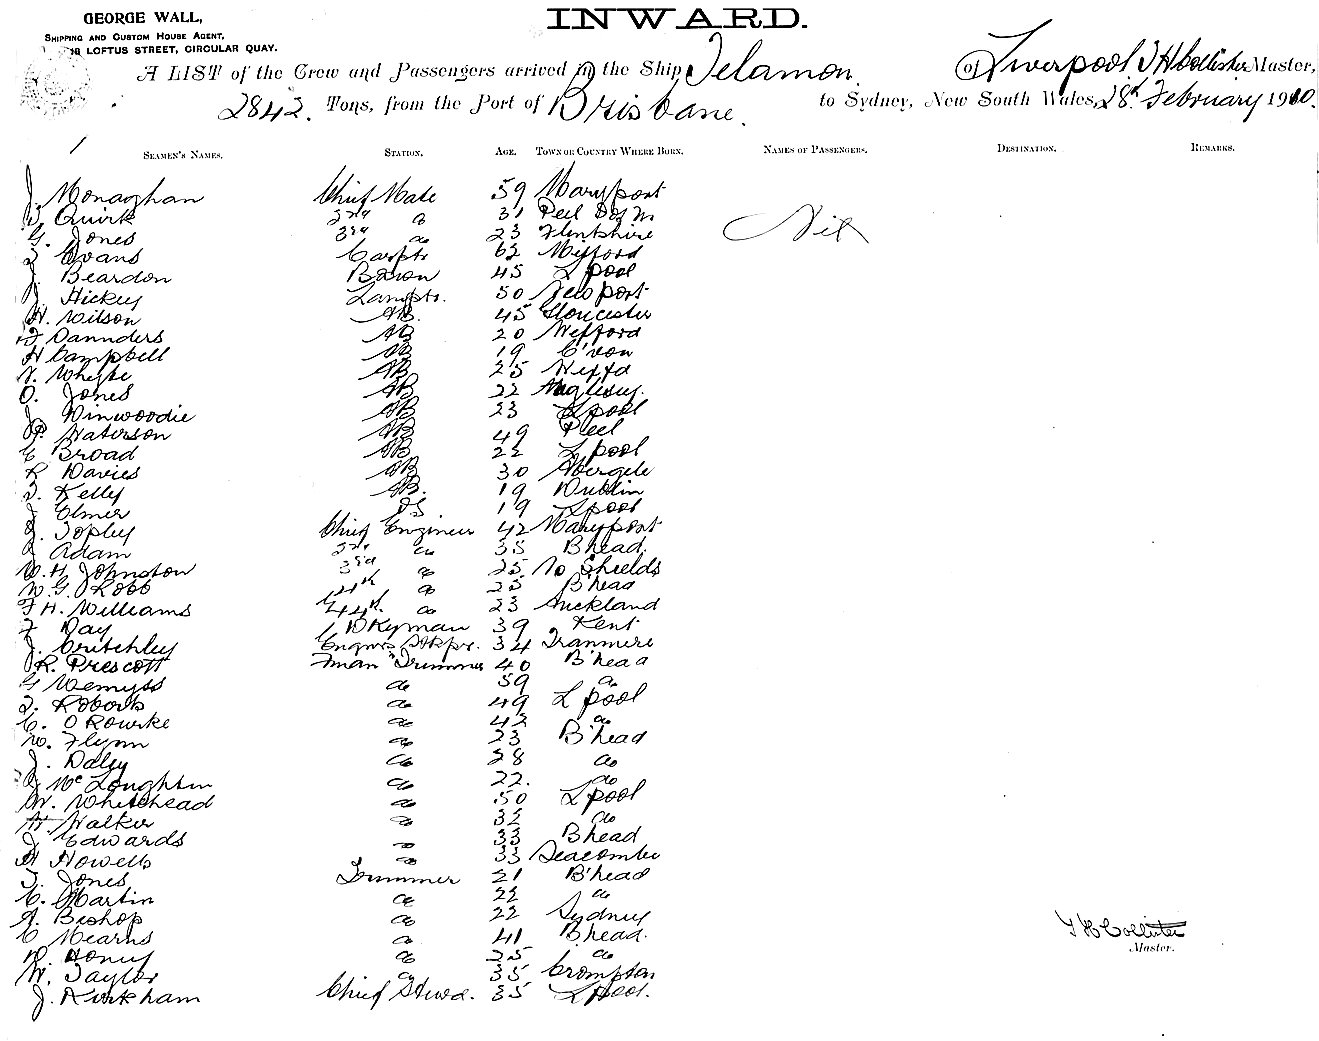 GEORGE WALL,
SHIPPING AND CUSTOM HOUSE AGENT,
LOFTUS STREET, CIRCULAR QUAY.
INWARD.
A LIST of the Crew and Passengers arrived in the Ship, Telamon. of Liverpool, T H Collister Master,
2842. Tons, from the Port of Brisbane. to Sydney, New South Wales, 28th February 1910.
SEAMEN'S NAMES. STATION. AGE. TOWN OR COUNTRY WHERE BORN. NAMES OF PASSENGERS. DESTINATION. REMARKS.
J. Monaghan Chief Mate 59 Maryport
Quirk 2nd do 31 Peel I of M Nil
G. Jones 3rd do 23 Flintshire
Evans Carptr 62 Milford
J. Beardon Boson 45 L'pool
J. Hickey Lamptr. 50 Newport
H. Wilson AB. 45 Gloucester
Saunders AB 20 Wexford
H Campbell AB 19 C'von
Whyte AB 25 Wexfd
O. Jones AB 22 Anglesey.
J Dinwoodie AB 23 L'pool
Waterson AB 49 Peel
C Broad AB 22 L pool
R Davies AB 30 Abergele
Kelly AB. 19 Dublin
J Elmer OS 19 L'pool
Topley Chief Engineer 42 Maryport
Adam 2nd do 35 B'head.
W. H. Johnston 3rd do 25 No Shields
W. G. Robb 4th do 25 B'head
F H. Williams 4th do 23 Auckland
F Day Dkyman 39 Kent
J. Critchley Engnrs Stkpr. 34 Tranmere
R. Prescott Fman & Trimmer 40 B'head
G Wemyss do 59 do
Roberts do 49 L'pool
C. O'Rourke do 42 do
W. Flynn do 23 B'head
J. Daley do 28 do
Mc Loughlin do 22. do
W. Whitehead do 50 L'pool
Walker do 32 do
J. Edwards do 33 B'head
H Howells do 33 Seacombe
Jones Trimmer 21 B'head
C. Martin do 22 do
A. Bishop do 22 Sydney
C Mearns do 41 B'head.
do 25 do
W. Taylor do 35 Crompton
J. Kirkham Chief Stwd. 35 L'pool.
T H Collister
Master.